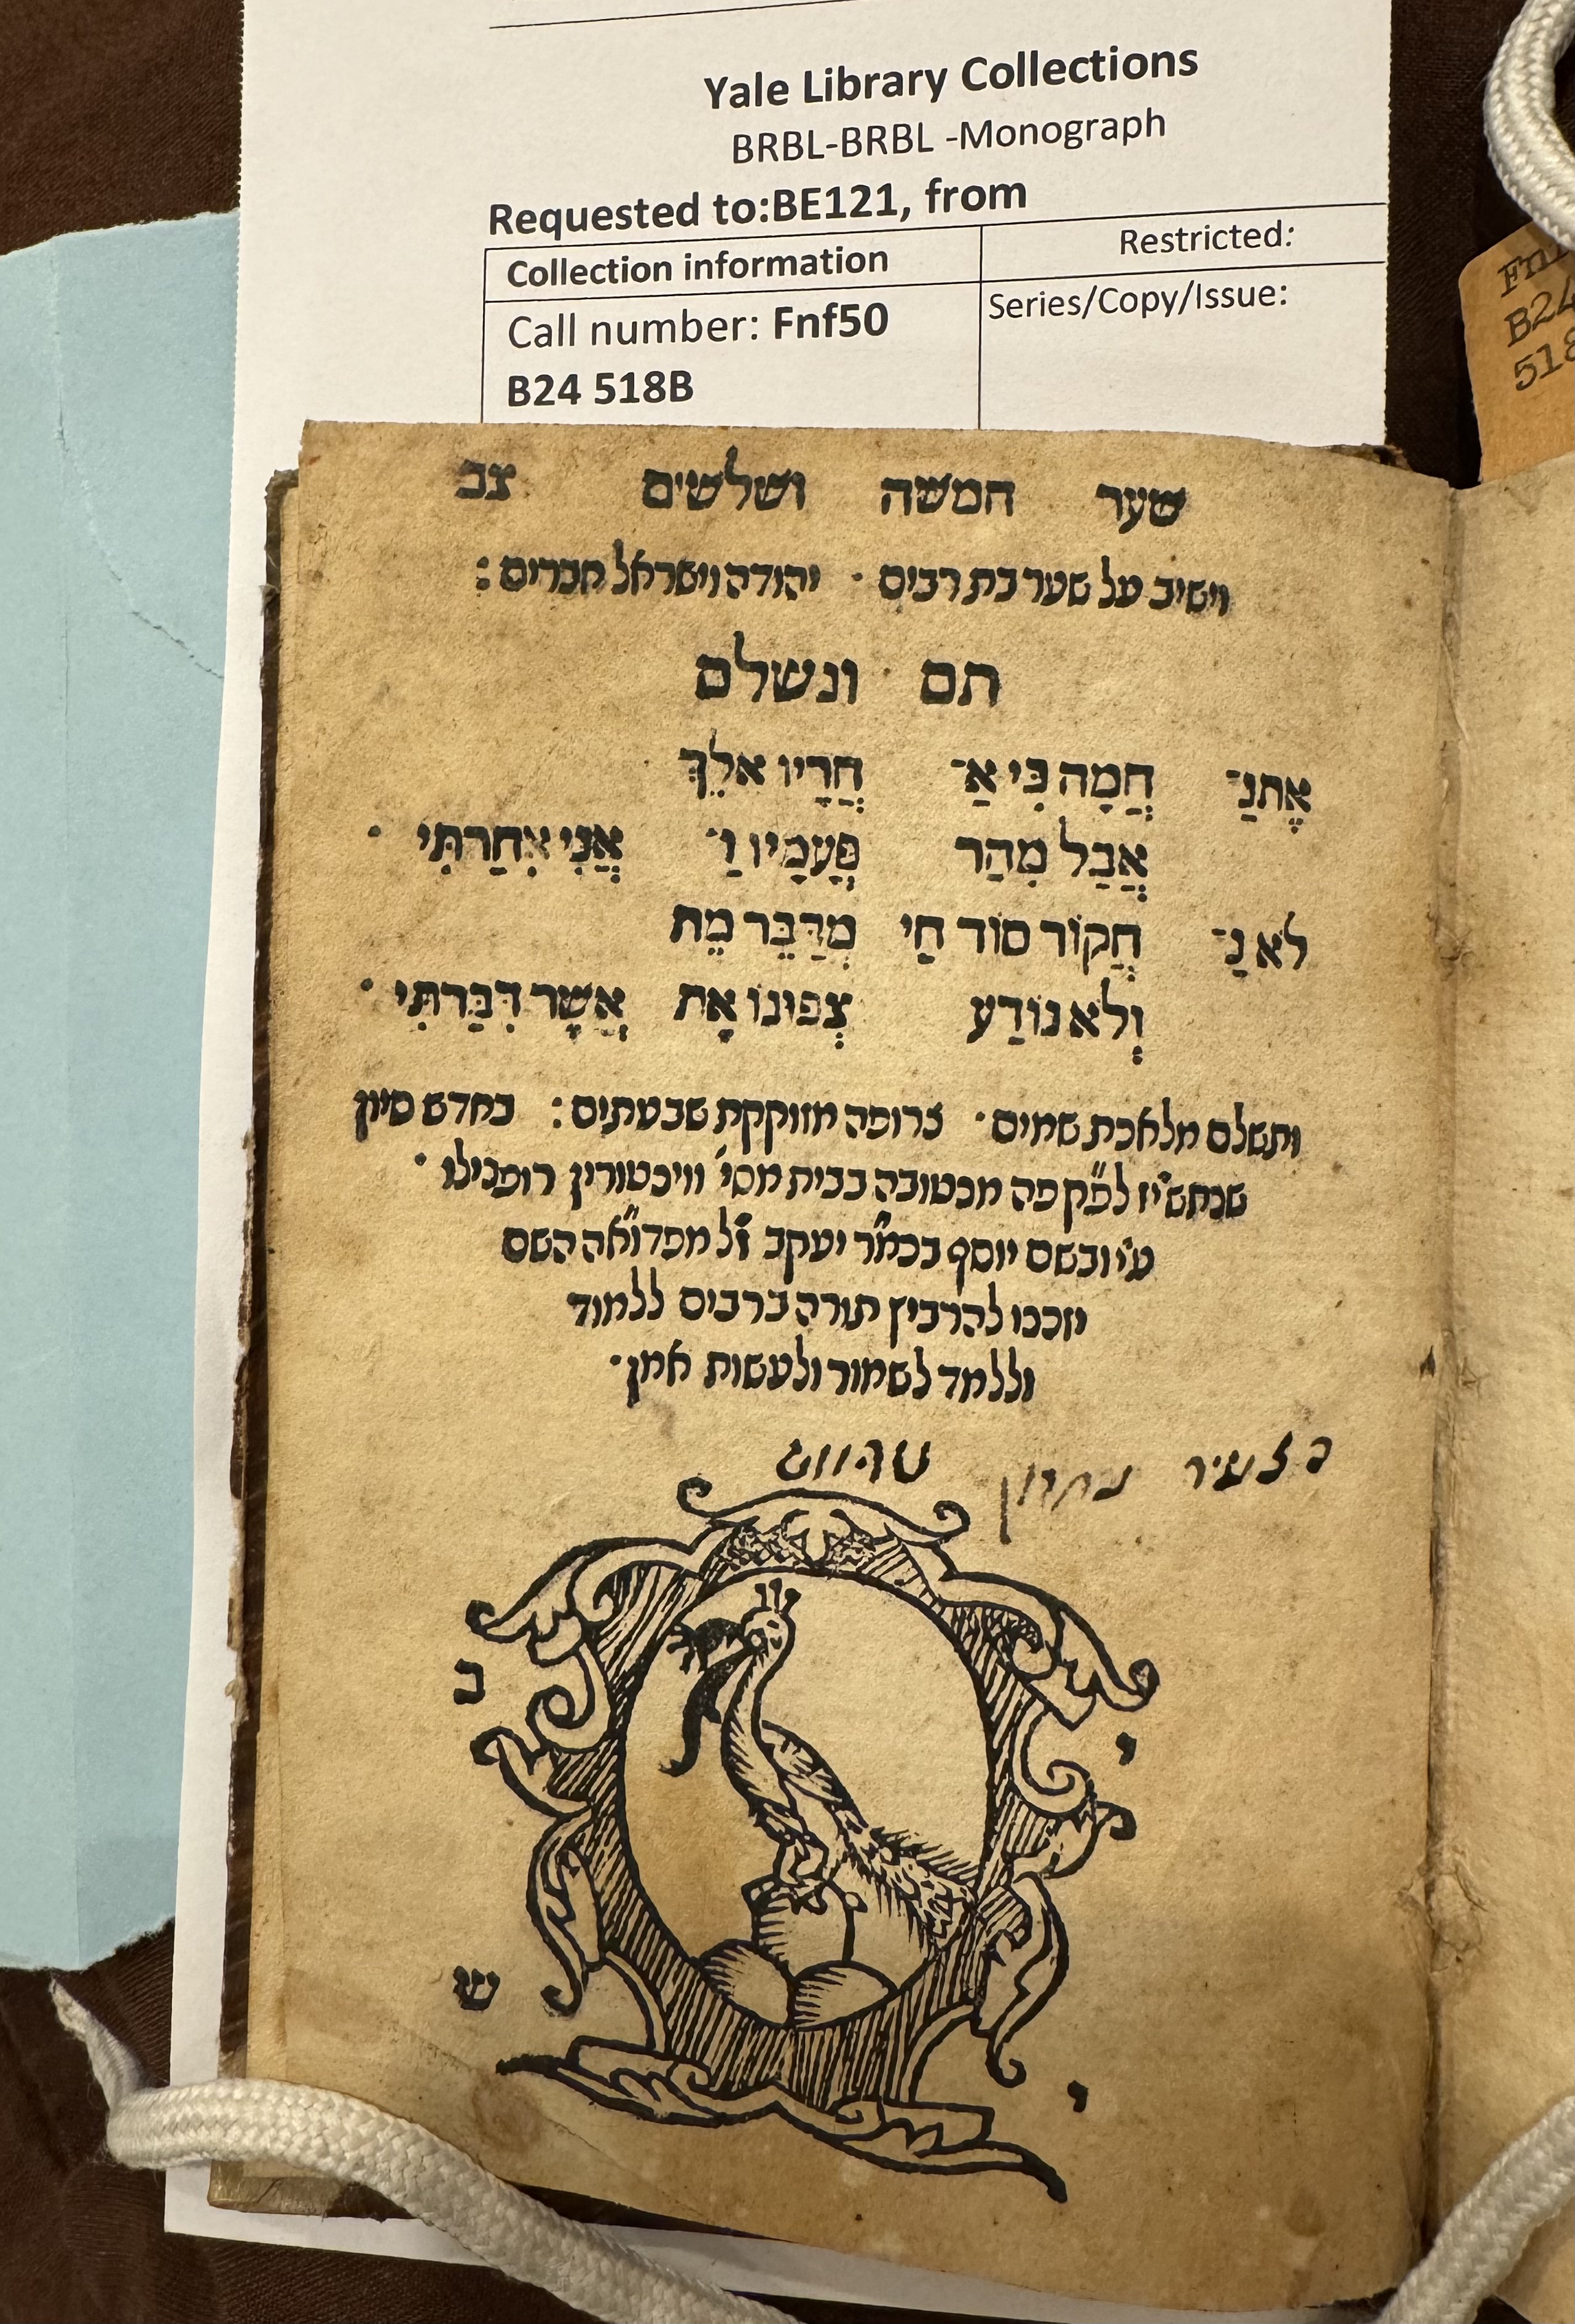 Yale Library Collections
BRBL-BRBL -Monograph
Requested to:BE121, from
Collection information
Restricted:
Call number: Fnf50
B24 518B
Series/Copy/Issue:
B24
518
שער חמשה ושלשים צב
וישיב על שער בת רבים · יהודה וישראל חברים :
תם ונשלם
אֶתנַ־ חֲמָה כִּי אַ־ חֲרָיו אלֵךְ
אֲבַל מִהַר פְּעָמָיו וַ־ אֲנִי אִחַרתִּי ·
לא נַ־ חֲקוֹר סוֹד חַי מְדַבֵּר מֵת
וְלֹא נוֹדַע צְפוּנוֹ אָת אֲשֶׁר דִּבַּרתִּי ·
ותשלם מלאכת שמים · צרופה מזוקקת שבעתים : בחדש סיון
שנת שי״ז לפ״ק פה מנטובה בבית מסי׳ וויכטורין רופנילו ·
ע״י ובשם יוסף בכמ״ר יעקב ז״ל מפדוא״ה השם
יזכנו להרביץ תורה ברבים ללמוד
וללמד לשמור ולעשות אמן ·
הצעיר
ב
י
ש
י